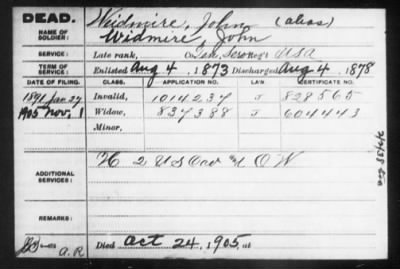 DEAD.
NAME OF SOLDIER:
Weidmire, John (alias)
Widmire, John
SERVICE:
Late rank, Co. Gen. Serv Reg't USA
TERM OF SERVICE:
Enlisted Aug 4, 1873 Discharged Aug 4, 1878
DATE OF FILING. CLASS. APPLICATION NO. LAW CERTIFICATE NO.
1891 Jan 27 Invalid, 1014237 J 828565
1905 Nov. 1 Widow, 837388 J 604443
Minor,
ADDITIONAL SERVICES:
H 2 US Cav
REMARKS:
A.R
Died Oct 24, 1905, at